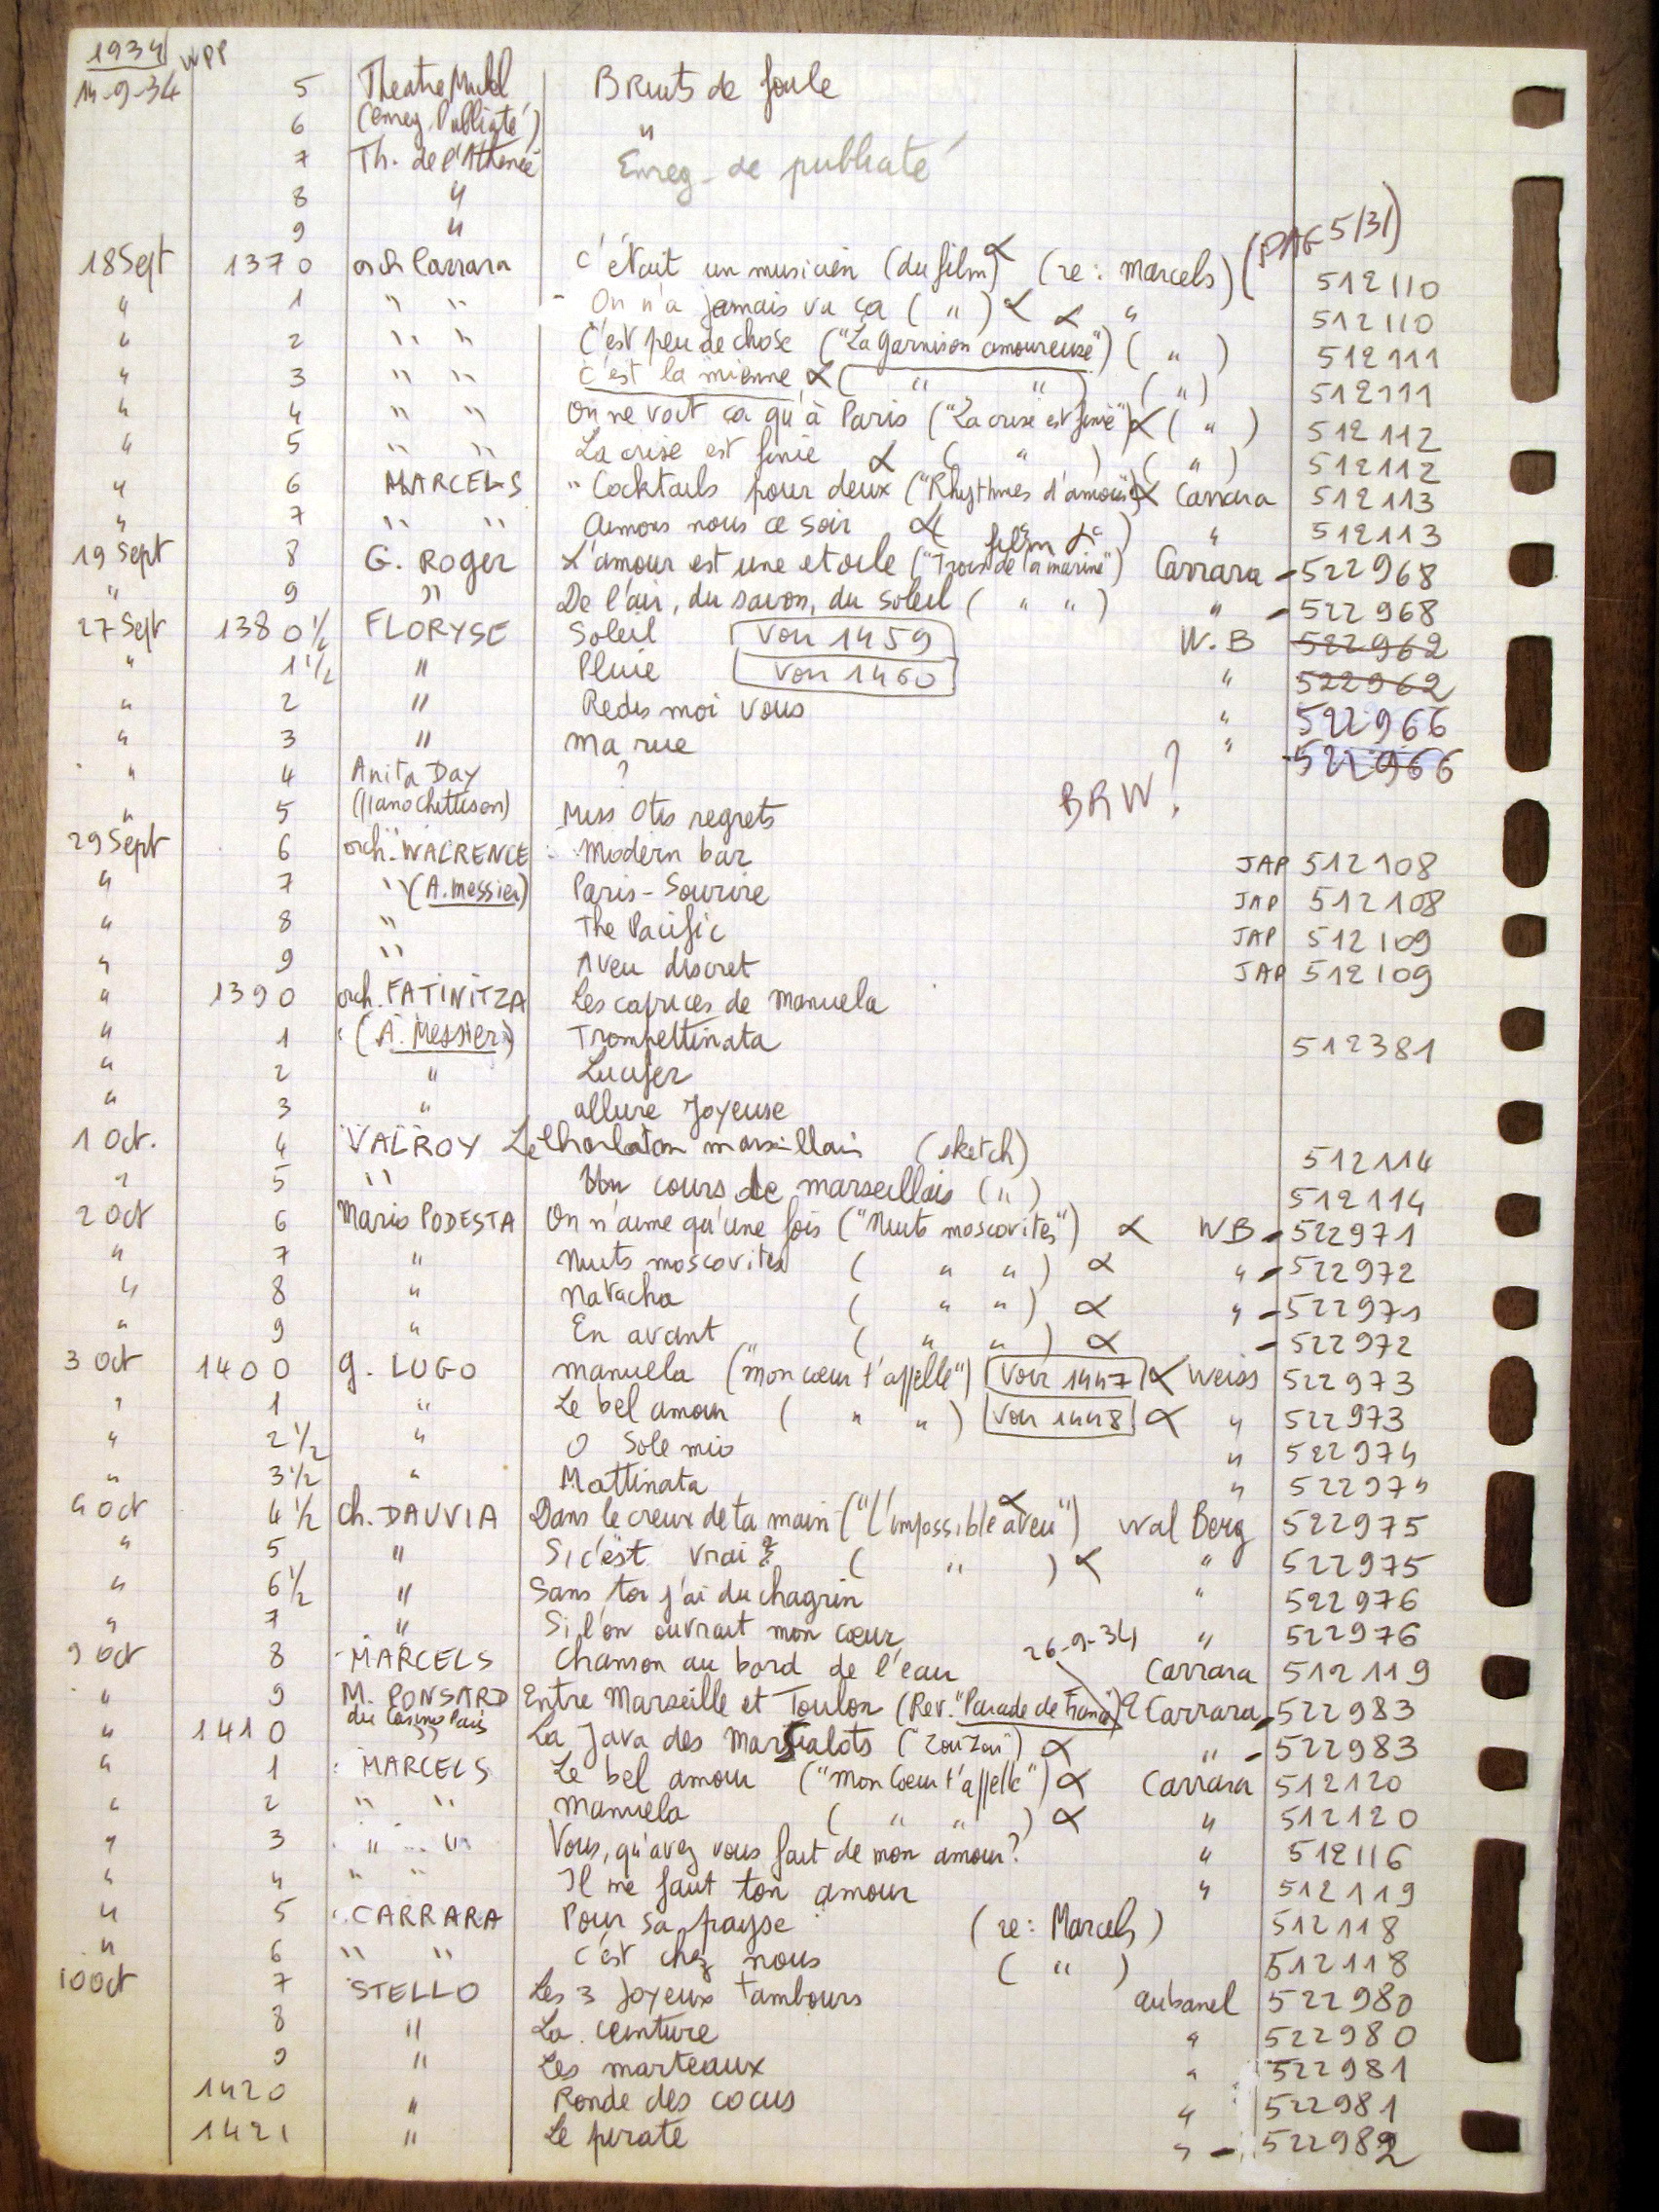 1934 WPP
14-9-34 5 Theatre Bruits de foule
6 (enreg. Publicité) "
7 Th. de l'Athenée Enreg. de publicité
8 "
9 "
18 Sept 1370 orch Carrara C'était un musicien (du film) ∝ (re: Marcels) (PAG 5/31) 512110
" 1 " " - On n'a jamais vu ça ( " ) ∝ ∝ " 512110
" 2 " " C'est peu de chose ("La garnison amoureuse") ( " ) 512111
" 3 " " C'est la mienne ∝ ( " " ) ( " ) 512111
" 4 " " On ne voit ça qu'à Paris ("La crise est finie") ∝ ( " ) 512112
" 5 " " La crise est finie ∝ ( " ) ( " ) 512112
" 6 MARCELS " Cocktails pour deux ("Rhythmes d'amour") ∝ Carrara 512113
" 7 " " Aimons nous ce soir ∝ ( " ) " 512113
19 Sept 8 G. Roger L'amour est une etoile (film "Trois de la marine") ∝ Carrara - 522968
" 9 " De l'air, du savon, du soleil ( " " ) " - 522968
27 Sept 1380 ½ FLORYSE Soleil Voir 1459 W.B 522962
" 1 ½ " Pluie Voir 1460 " 522962
" 2 " Redis moi vous " 522966
" 3 " Ma rue " - 522966
" 4 Anita Day ? BRW?
" 5 (Piano Chittison) Miss Otis regrets
29 Sept 6 orch. WALRENCE Modern bar JAP 512108
" 7 " (A. Messier) Paris-Sourire JAP 512108
" 8 " The Pacific JAP 512109
" 9 " Aveu discret JAP 512109
" 1390 orch. FATINITZA Les caprices de Manuela
" 1 (A. Messier) Trompettinata 512381
" 2 " Lucifer
" 3 " Allure Joyeuse
1 Oct. 4 VALROY Le Charlatan marseillais (sketch) 512114
" 5 " Un cours de marseillais ( " ) 512114
2 Oct 6 Mario PODESTA On n'aime qu'une fois ("Nuits moscovites") ∝ WB - 522971
" 7 " Nuits moscovites ( " " ) ∝ " - 522972
" 8 " Natacha ( " " ) ∝ " - 522971
" 9 " En avant ( " " ) ∝ - 522972
3 Oct 1400 G. LUGO Manuela ("mon cœur t'appelle") Voir 1447 ∝ Weiss 522973
" 1 " Le bel amour ( " " ) Voir 1448 ∝ " 522973
" 2 ½ " O Sole mio " 522974
" 3 ½ " Mattinata " 522974
4 Oct 4 ½ Ch. DAUVIA Dans le creux de ta main ("L'impossible aveu") ∝ Wal Berg 522975
" 5 " Si c'est vrai ? ( " ) ∝ " 522975
" 6 ½ " Sans toi j'ai du chagrin " 522976
" 7 " Si l'on ouvrait mon cœur " 522976
9 Oct 8 MARCELS Chanson au bord de l'eau 26-9-34 Carrara 512119
" 9 M. PONSARD du Casino Paris Entre Marseille et Toulon (Rev. "Parade de France") Carrara - 522983
" 1410 " La Java des Marsialots ("Zouzou") ∝ " - 522983
" 1 MARCELS Le bel amour ("Mon Cœur t'appelle") ∝ Carrara 512120
" 2 " " Manuela ( " " ) ∝ " 512120
" 3 " " Vous, qu'avez vous fait de mon amour? " 512116
" 4 " " Il me faut ton amour " 512119
" 5 CARRARA Pour sa payse (re: Marcels) 512118
" 6 " " C'est chez nous ( " ) 512118
10 Oct 7 STELLO Les 3 Joyeux tambours aubanel 522980
8 " La ceinture " 522980
9 " Les marteaux " 522981
1420 " Ronde des cocus " 522981
1421 " Le pirate " - 522982